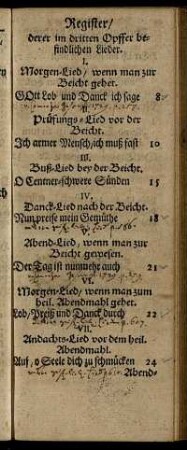 Register/
derer im dritten Opffer be-
findlichen Lieder.
I.
Morgen-Lied/ wenn man zur
Beicht gehet.
GOtt Lob und Danck ich sage 8
Prüfungs-Lied vor der
Beicht.
Ich armer Mensch, ich muß fast 10
III.
Buß-Lied bey der Beicht.
O Centner-schwere Sünden 15
IV.
Danck-Lied nach der Beicht.
Nun preise mein Gemüthe 18
Abend-Lied, wenn man zur
Beicht gewesen.
Der Tag ist nunmehr auch 21
VI.
Morgen-Lied/ wenn man zum
heil. Abendmahl gehet.
Lob/ Preiß und Danck durch 22
VII.
Andachts-Lied vor dem heil.
Abendmahl.
Auf, o Seele dich zu schmücken 24
Abend-